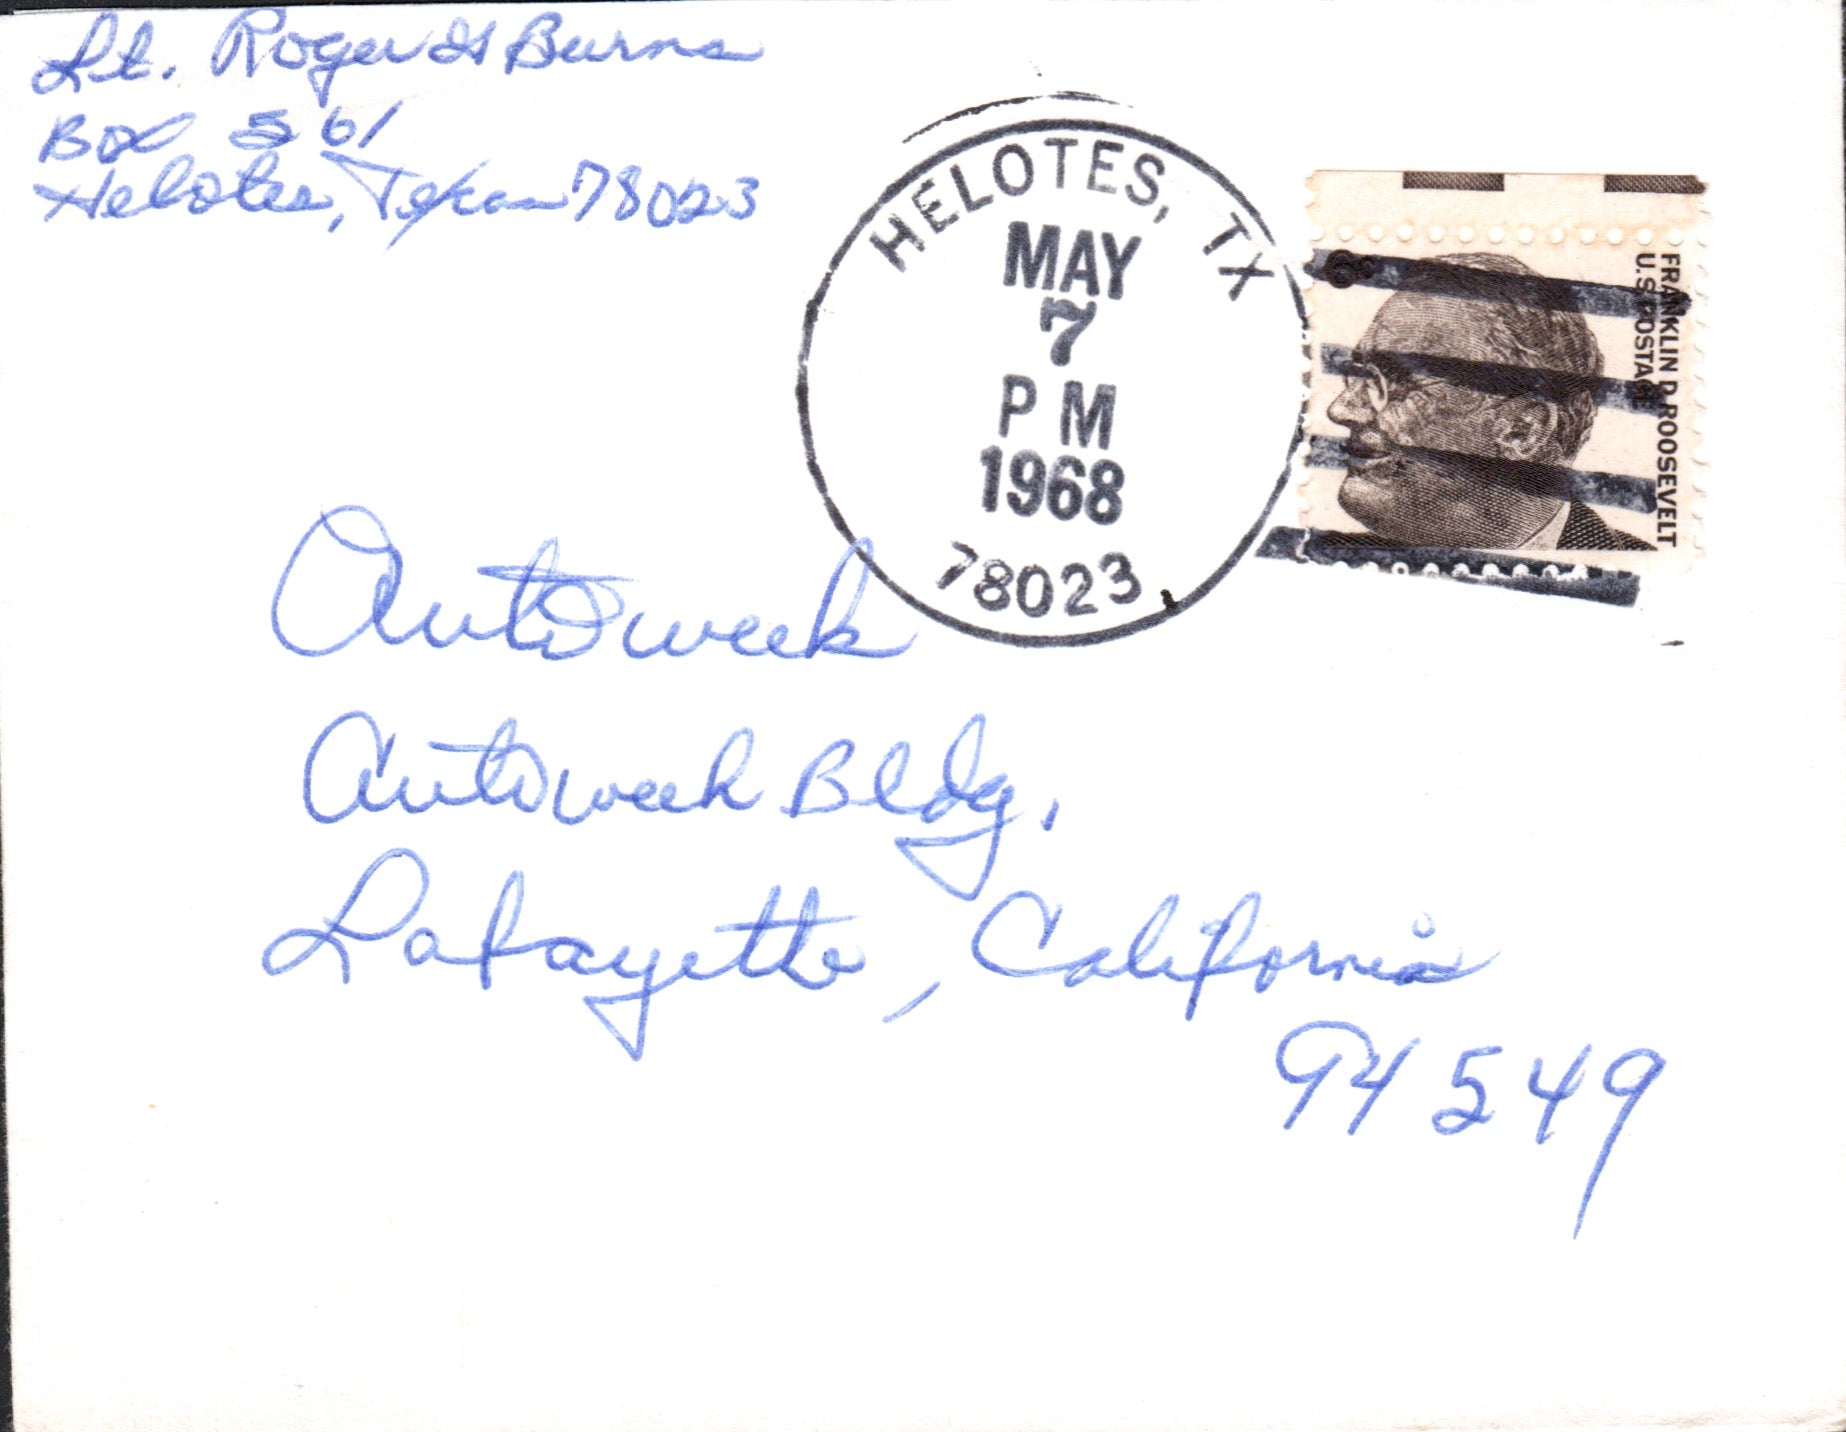 Lt. Roger H Burns
Box 561
Helotes, Texas 78023
HELOTES, TX
MAY
7
PM
1968
78023
6c
FRANKLIN D ROOSEVELT
U.S. POSTAGE
Autoweek
Autoweek Bldg.
Lafayette, California
94549